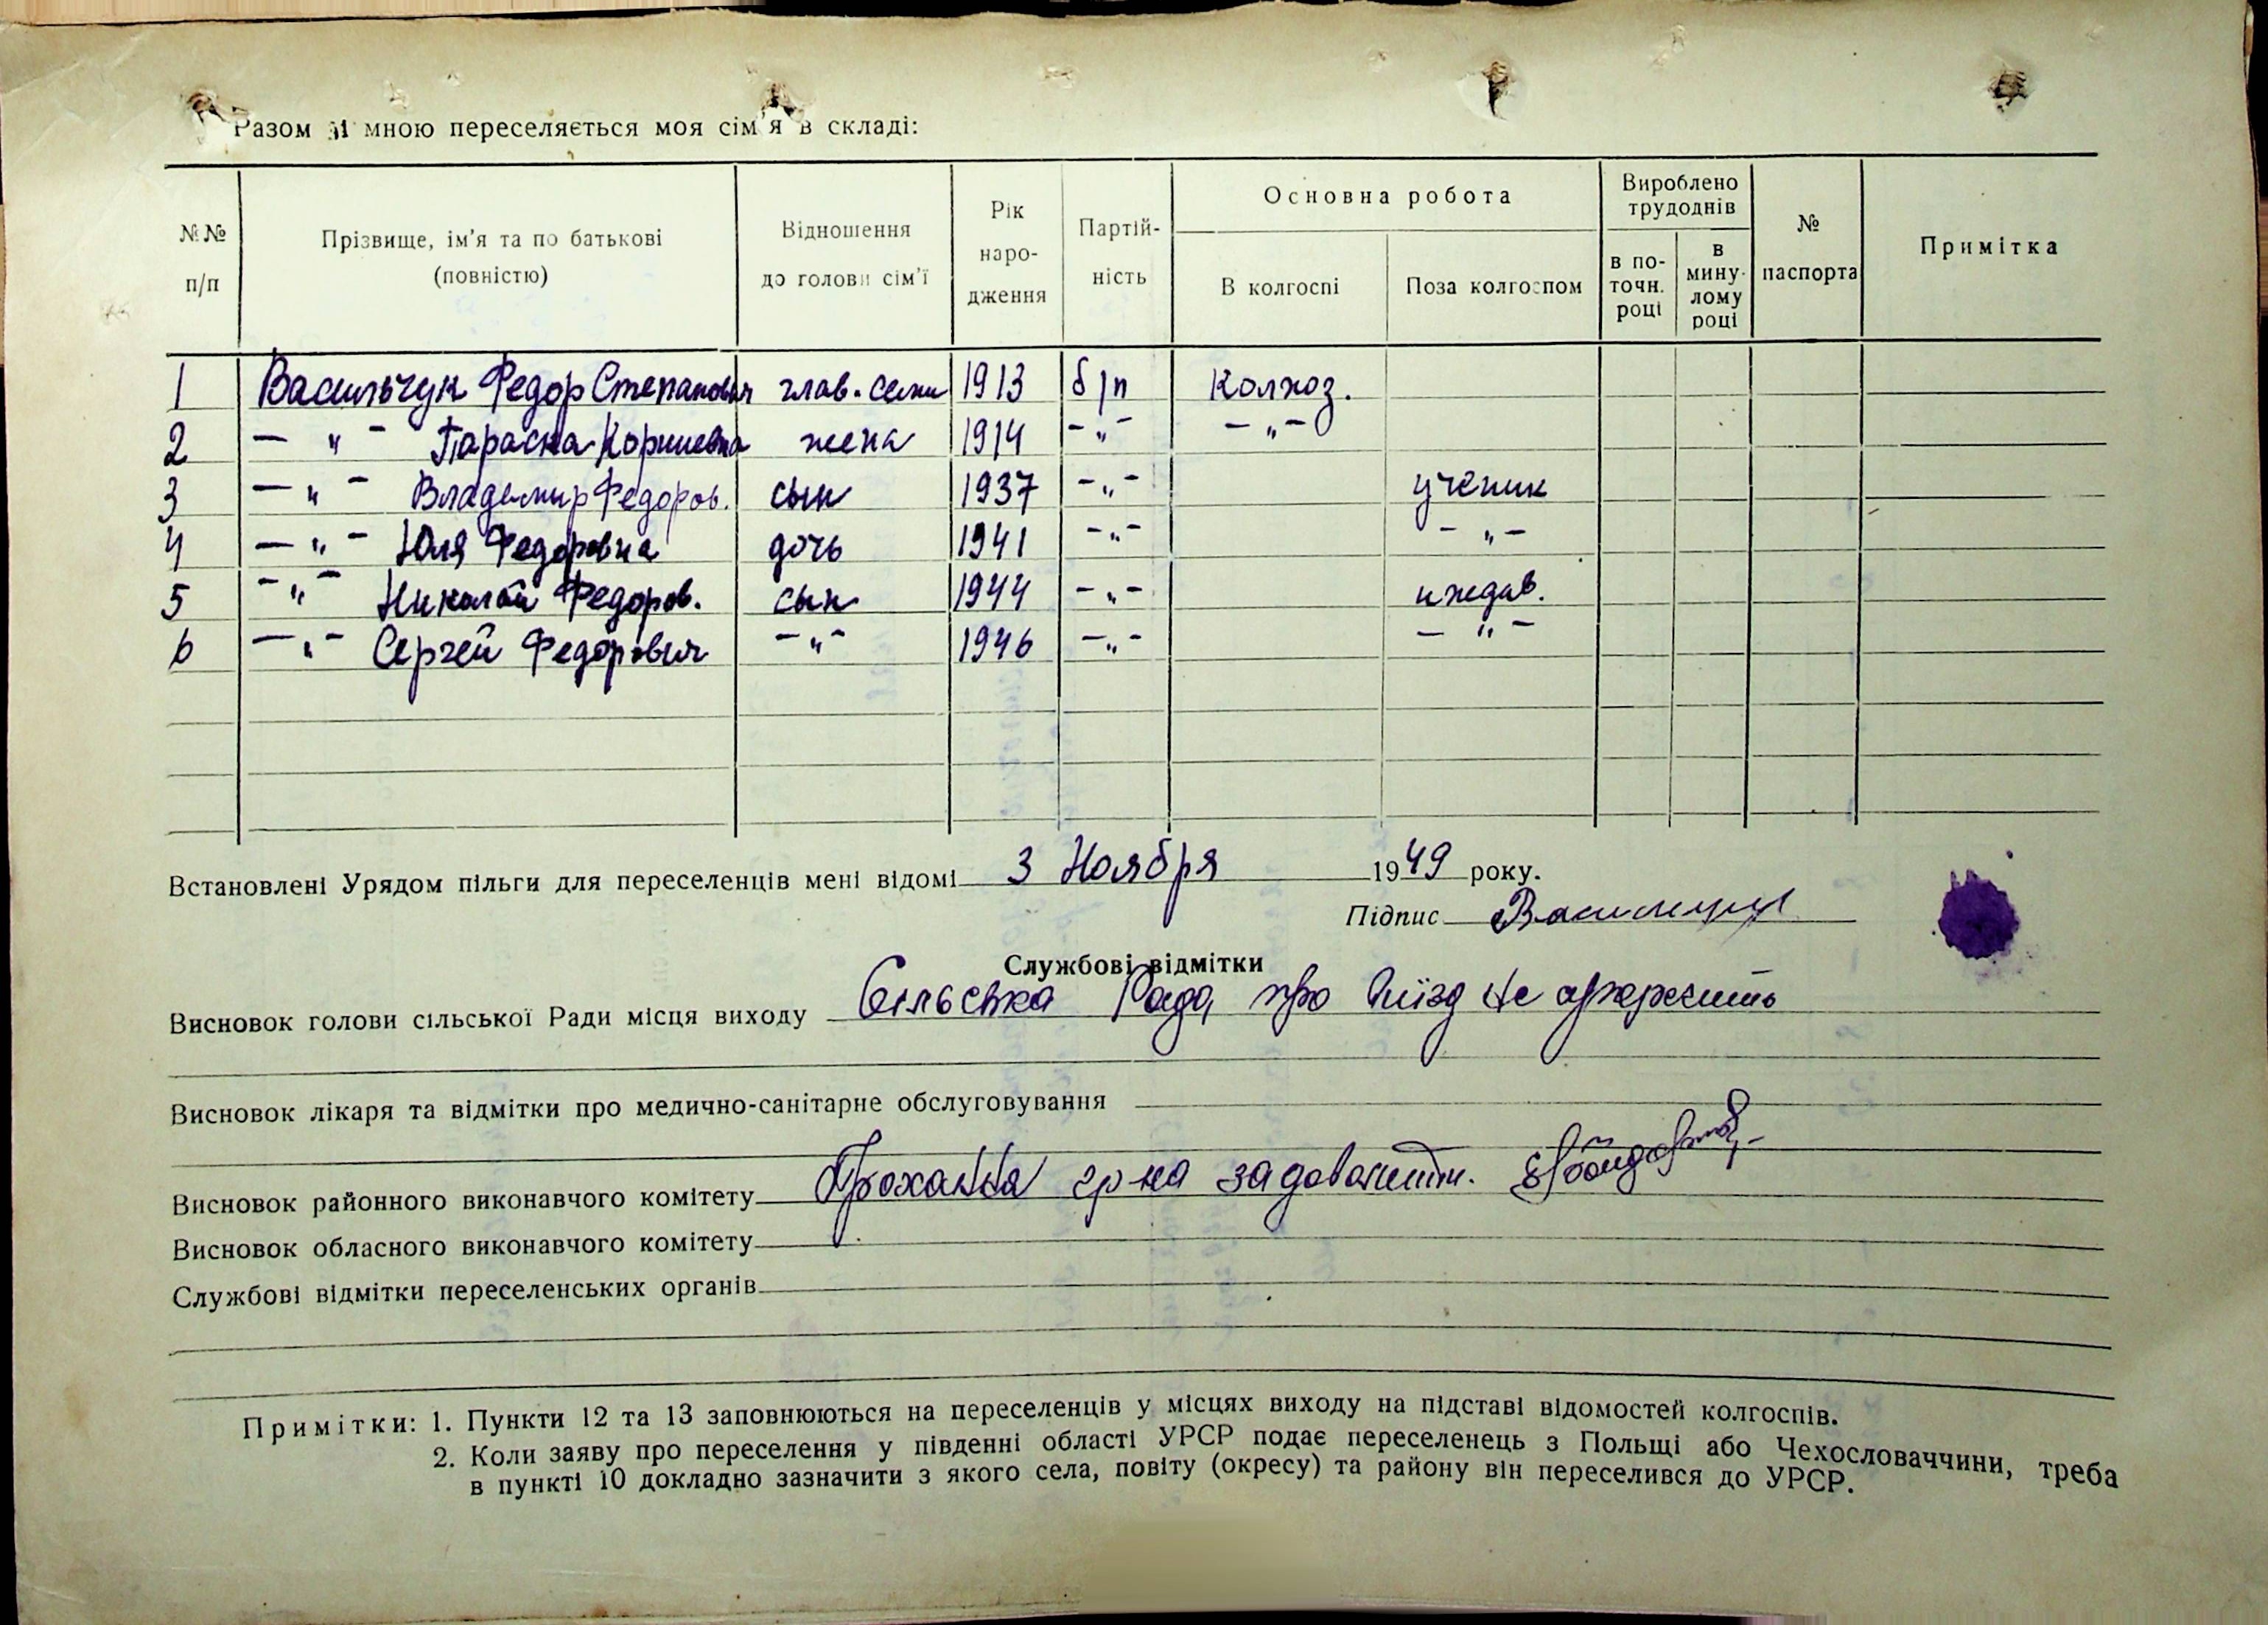 Разом зі мною переселяється моя сім'я в складі:
№№ п/п | Прізвище, ім'я та по батькові (повністю) | Відношення до голови сім'ї | Рік народження | Партійність | Основна робота | Вироблено трудоднів | № паспорта | Примітка
В колгоспі | Поза колгоспом | в поточн. році | в минулому році
1 Васильчук Федор Степанович глав. семи 1913 б/п Колхоз.
2 — " — Параска Корнеевна жена 1914 - " - - " -
3 — " — Владимир Федоров. сын 1937 - " - ученик
4 — " — Юля Федоровна дочь 1941 - " - - " -
5 - " - Николай Федоров. сын 1944 - " - иждив.
6 — " - Сергей Федорович - " - 1946 - " - - " -
Встановлені Урядом пільги для переселенців мені відомі 3 Ноября 1949 року.
Підпис
Службові відмітки
Висновок голови сільської Ради місця виходу Сільська Рада про виїзд не
Висновок лікаря та відмітки про медично-санітарне обслуговування
Висновок районного виконавчого комітету Прохання гр-на задовольнити.
Висновок обласного виконавчого комітету
Службові відмітки переселенських органів
Примітки: 1. Пункти 12 та 13 заповнюються на переселенців у місцях виходу на підставі відомостей колгоспів.
2. Коли заяву про переселення у південні області УРСР подає переселенець з Польщі або Чехословаччини, треба
в пункті 10 докладно зазначити з якого села, повіту (окресу) та району він переселився до УРСР.